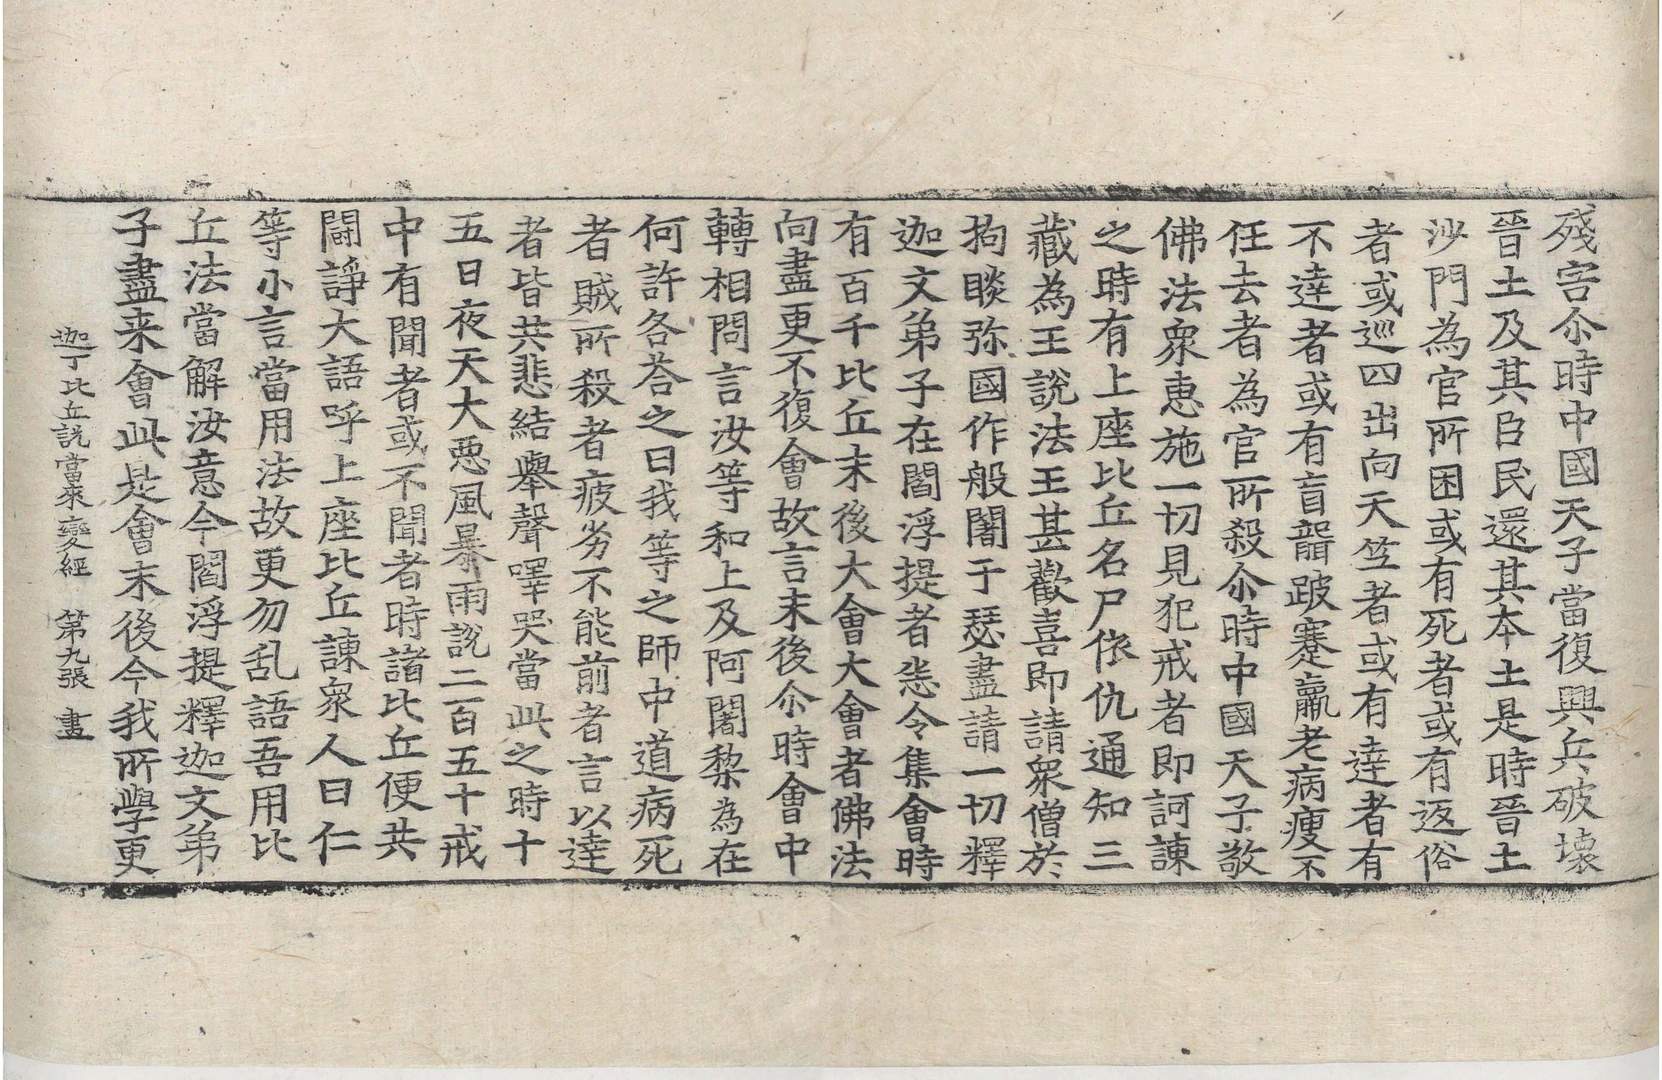 殘害尒時中國天子當復興兵破壞
晉土及其臣民還其本土是時晉土
沙門為官所困或有死者或有返俗
者或巡四出向天竺者或有達者有
不達者或有盲聾跛蹇羸老病瘦不
任去者為官所殺尒時中國天子敬
佛法衆惠施一切見犯戒者即訶諫
之時有上座比丘名尸依仇通知三
藏為王說法王甚歡喜即請衆僧於
拘睒弥國作般闍于瑟盡請一切釋
迦文弟子在閻浮提者悉令集會時
有百千比丘末後大會大會者佛法
向盡更不復會故言末後尒時會中
轉相問言汝等和上及阿闍梨為在
何許各荅之曰我等之師中道病死
者賊所殺者疲劣不能前者言以達
者皆共悲結舉聲嘷哭當此之時十
五日夜天大惡風暴雨說二百五十戒
中有聞者或不聞者時諸比丘便共
鬪諍大語呼上座比丘諫衆人曰仁
等小言當用法故更勿乱語吾用比
丘法當解汝意今閻浮提釋迦文弟
子盡来會此是會末後今我所學更
迦丁比丘說當来變經 第九張 畫